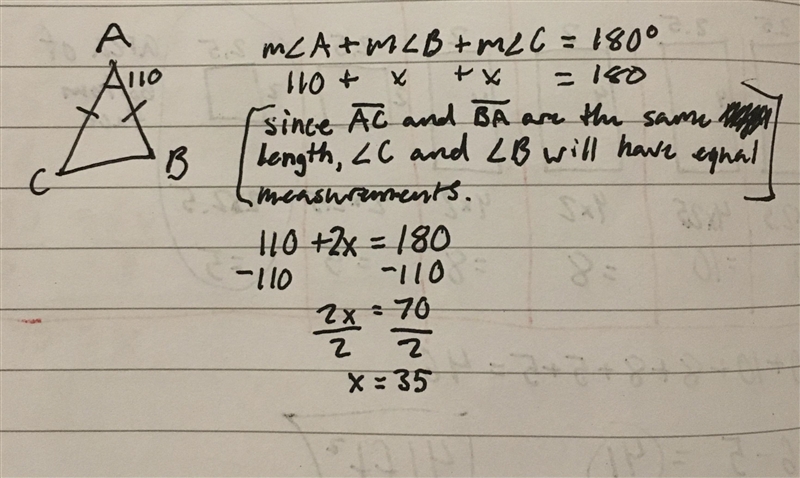 A
110
C
B
m∠A + m∠B + m∠C = 180°
110 + x + x = 180
[since AC and BA are the same
length, ∠C and ∠B will have equal
measurements.]
110 + 2x = 180
-110 -110
2x = 70
2 2
x = 35